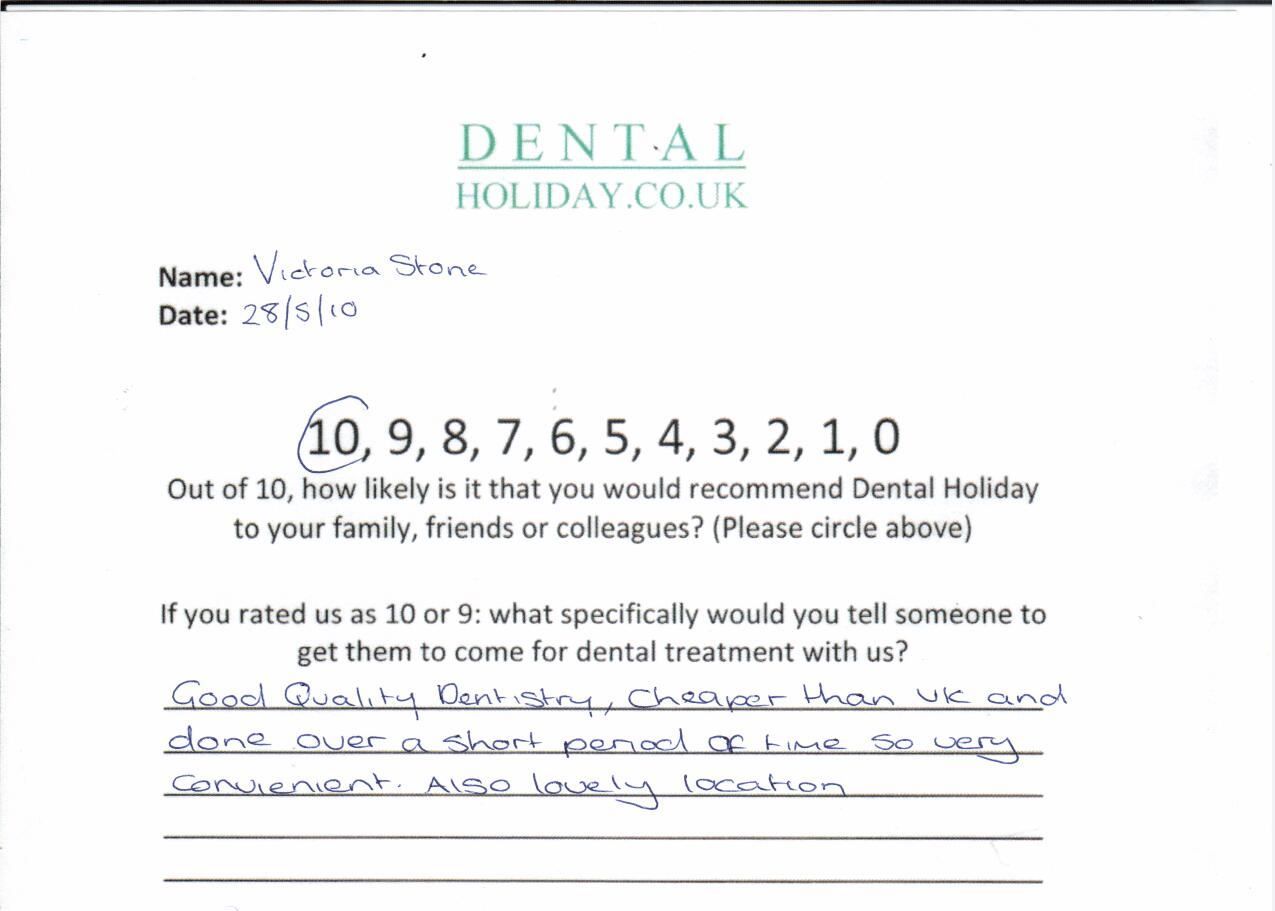 DENTAL
HOLIDAY.CO.UK
Name: Victoria Stone
Date: 28/5/10
10, 9, 8, 7, 6, 5, 4, 3, 2, 1, 0
Out of 10, how likely is it that you would recommend Dental Holiday
to your family, friends or colleagues? (Please circle above)
If you rated us as 10 or 9: what specifically would you tell someone to
get them to come for dental treatment with us?
Good Quality Dentistry, Cheaper than UK and
done over a short period of time so very
convienient. Also lovely location